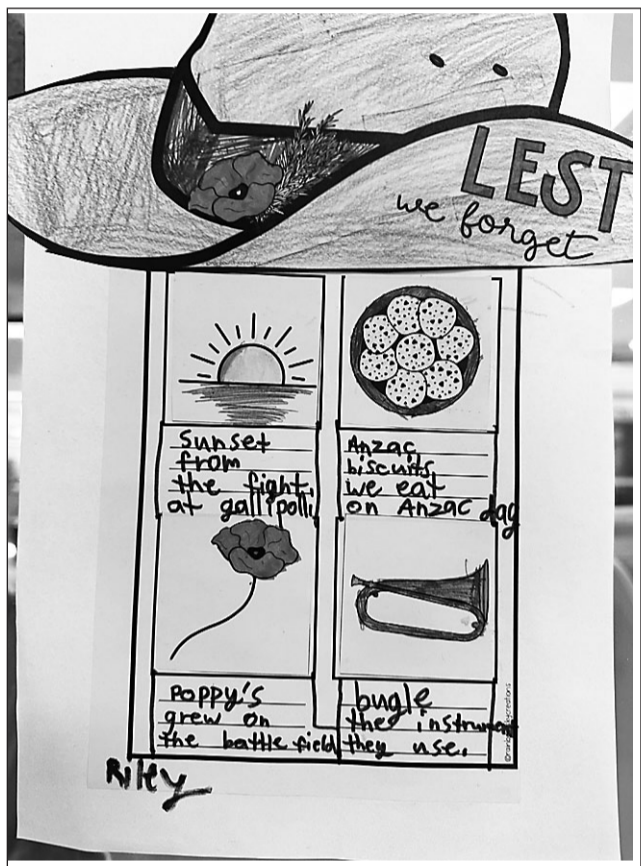 LEST
we forget
Sunset
from
the fight
at gallipolli
Anzac
biscuits
we eat
on Anzac day
Poppy's
grew on
the battle field
bugle
the instrument
they use.
Riley